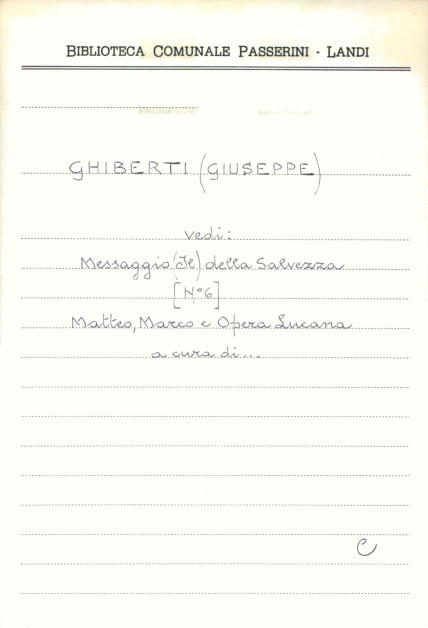 BIBLIOTECA COMUNALE PASSERINI - LANDI
GHIBERTI (GIUSEPPE)
vedi:
Messaggio (Il) della Salvezza
[N°6]
Matteo, Marco e Opera Lucana
a cura di...
C